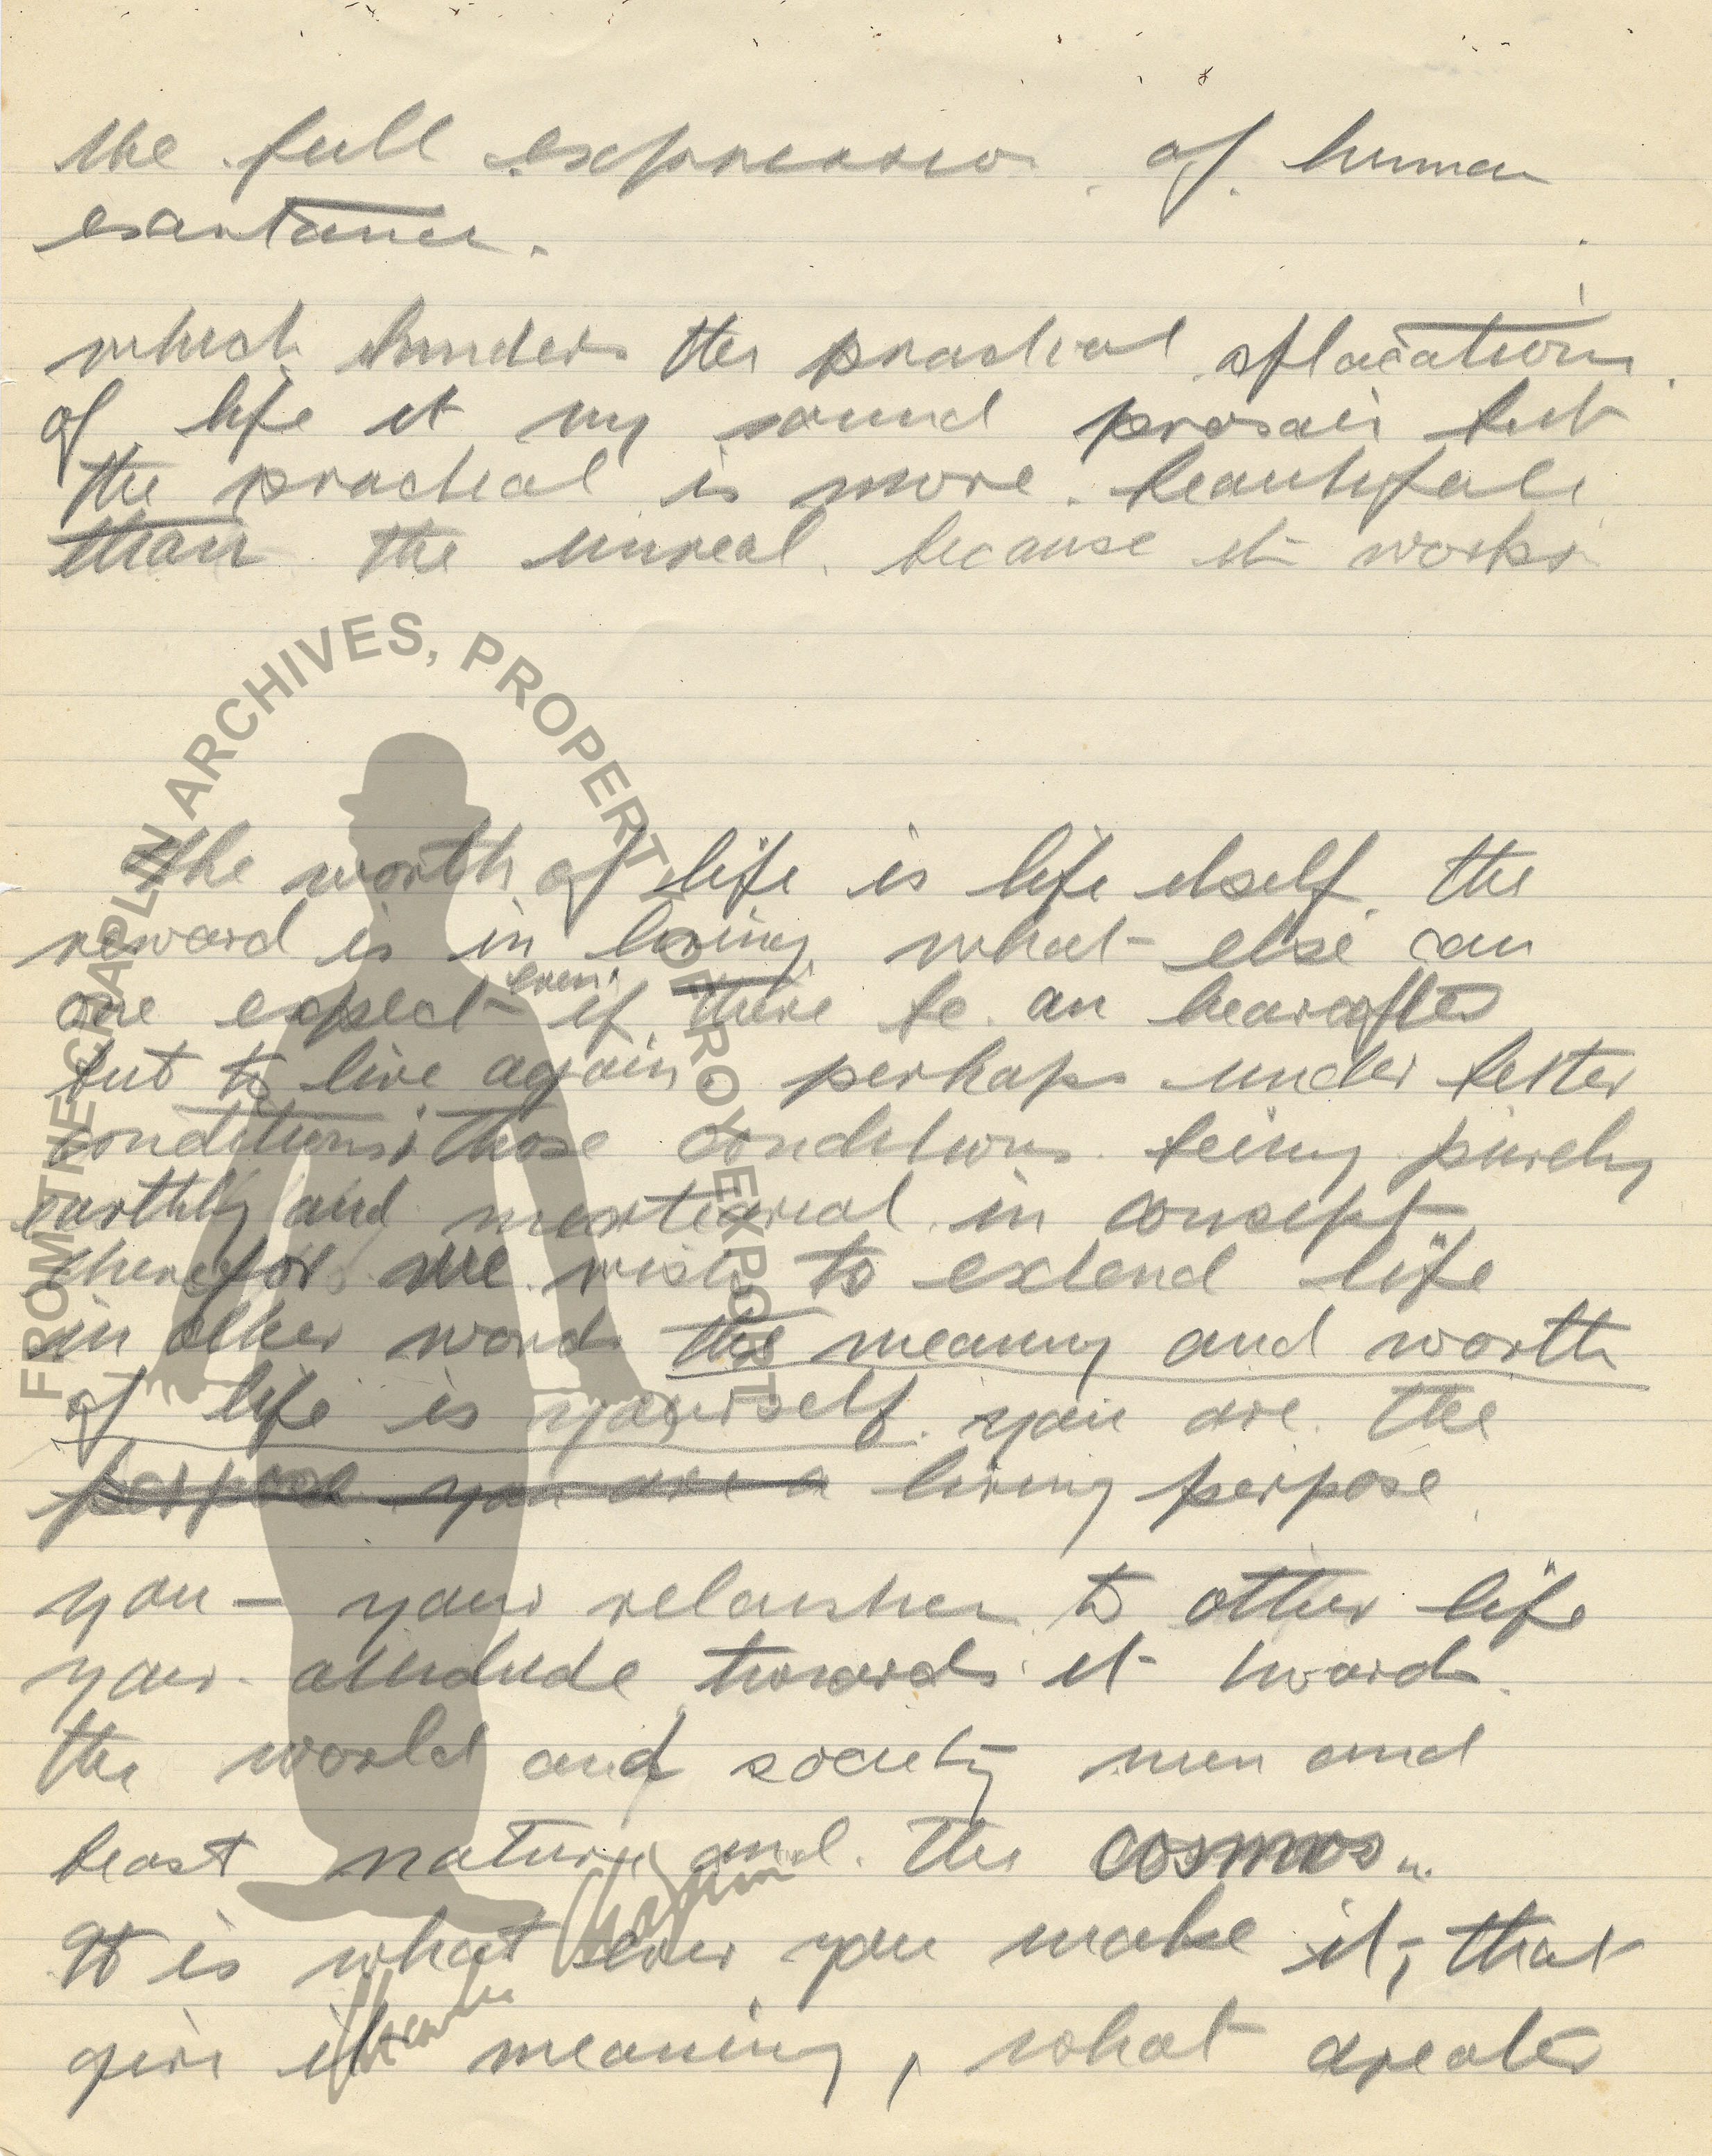 the full expression of human
existance.
which hinders the practical aplacation
of life it my sound prosaic but
the practical is more beautifull
than the unreal because it works
The worth of life is life itself. the
reward is in living, what else can
one expect even if there be an hearafter
but to live again. perhaps under better
conditions; those conditions being purely
earthly and material in consept
therefor we wish to extend life
in other words the meaning and worth
of life is yourself. you are the
perpose you are a living perpose
you — your relation to other life
your attitude towards it towards
the world and society men and
beast nature and the cosmos...
It is what ever you make it, that
give it meaning, what greater
FROM THE CHAPLIN ARCHIVES, PROPERTY OF ROY EXPORT
Charlie Chaplin